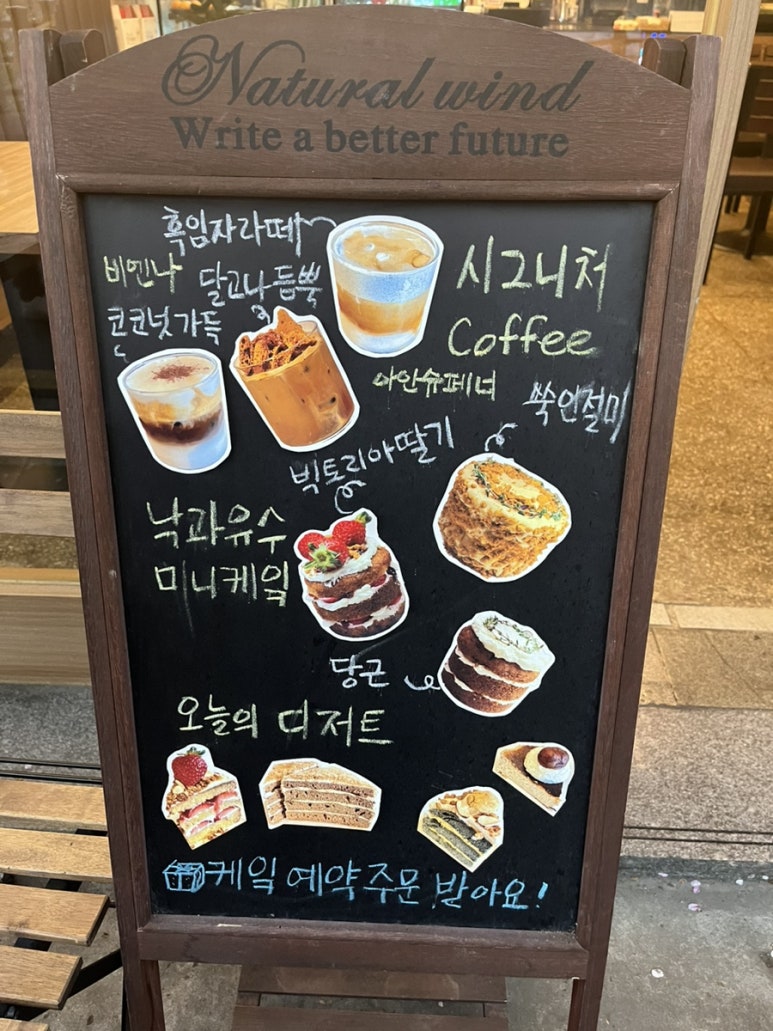 Natural wind
Write a better future
흑임자라떼
비엔나
달고나듬뿍
코코넛가득
시그니처
Coffee
아인슈페너
쑥인절미
빅토리아딸기
낙과유수
미니케잌
당근
오늘의 디저트
케잌 예약주문 받아요!